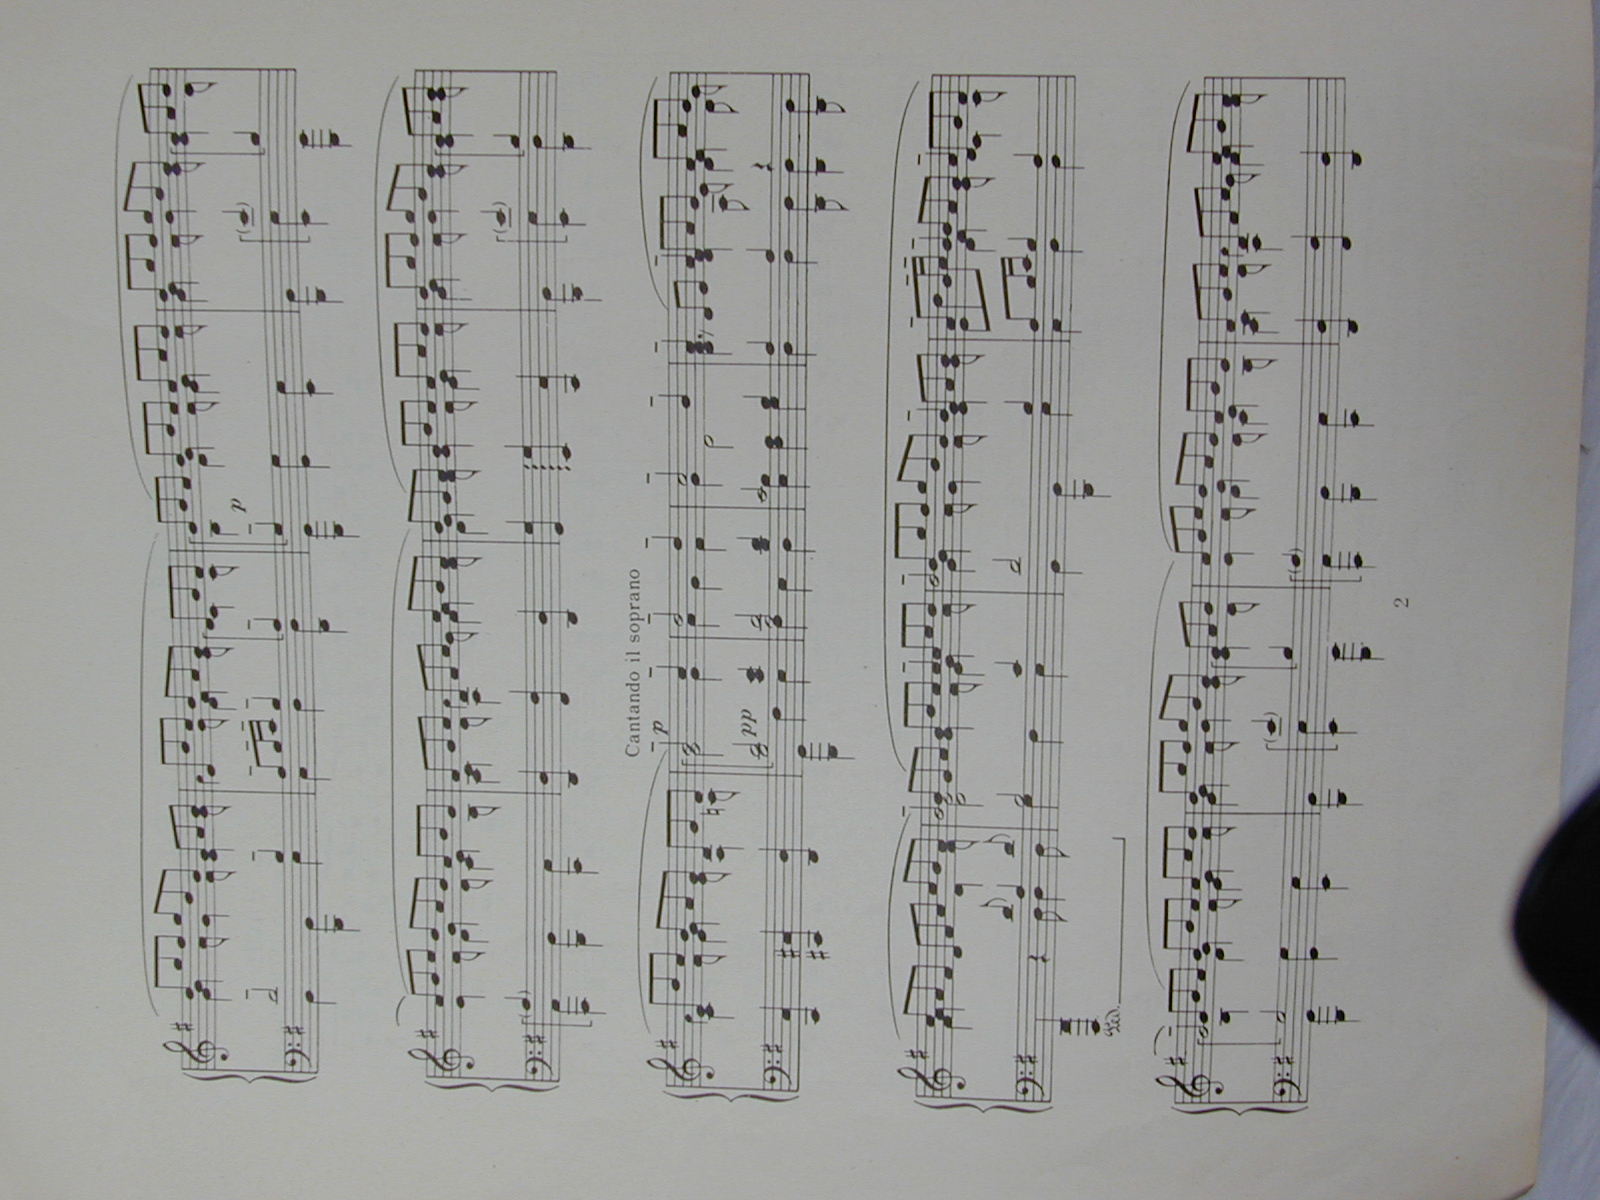 p
Cantando il soprano
p
pp
Ped.
2